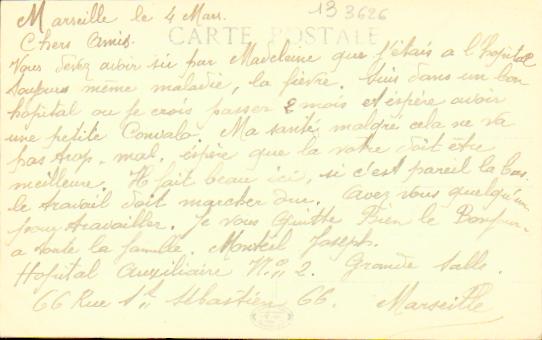 13 3626
Marseille le 4 Mars.
Chers Amis.
CARTE POSTALE
Vous devez avoir su par Madeleine que j'étais a l'hopital
toujours même maladie, la fièvre. Suis dans un bon
hopital ou je crois passer 2 mois et espère avoir
une petite Convalo. Ma santé malgré cela ne va
pas trop mal. espère que la votre doit être
meilleure. Il fait beau ici, si c'est pareil la bas
le travail doit marcher dur. Avez vous quelqu'un
pour travailler. Je vous Quitte Bien le Bonjour
a toute la famille. Monteil Joseph.
Hopital Auxiliaire N° 2. Grande Salle.
66 Rue St Sébastien 66. Marseille